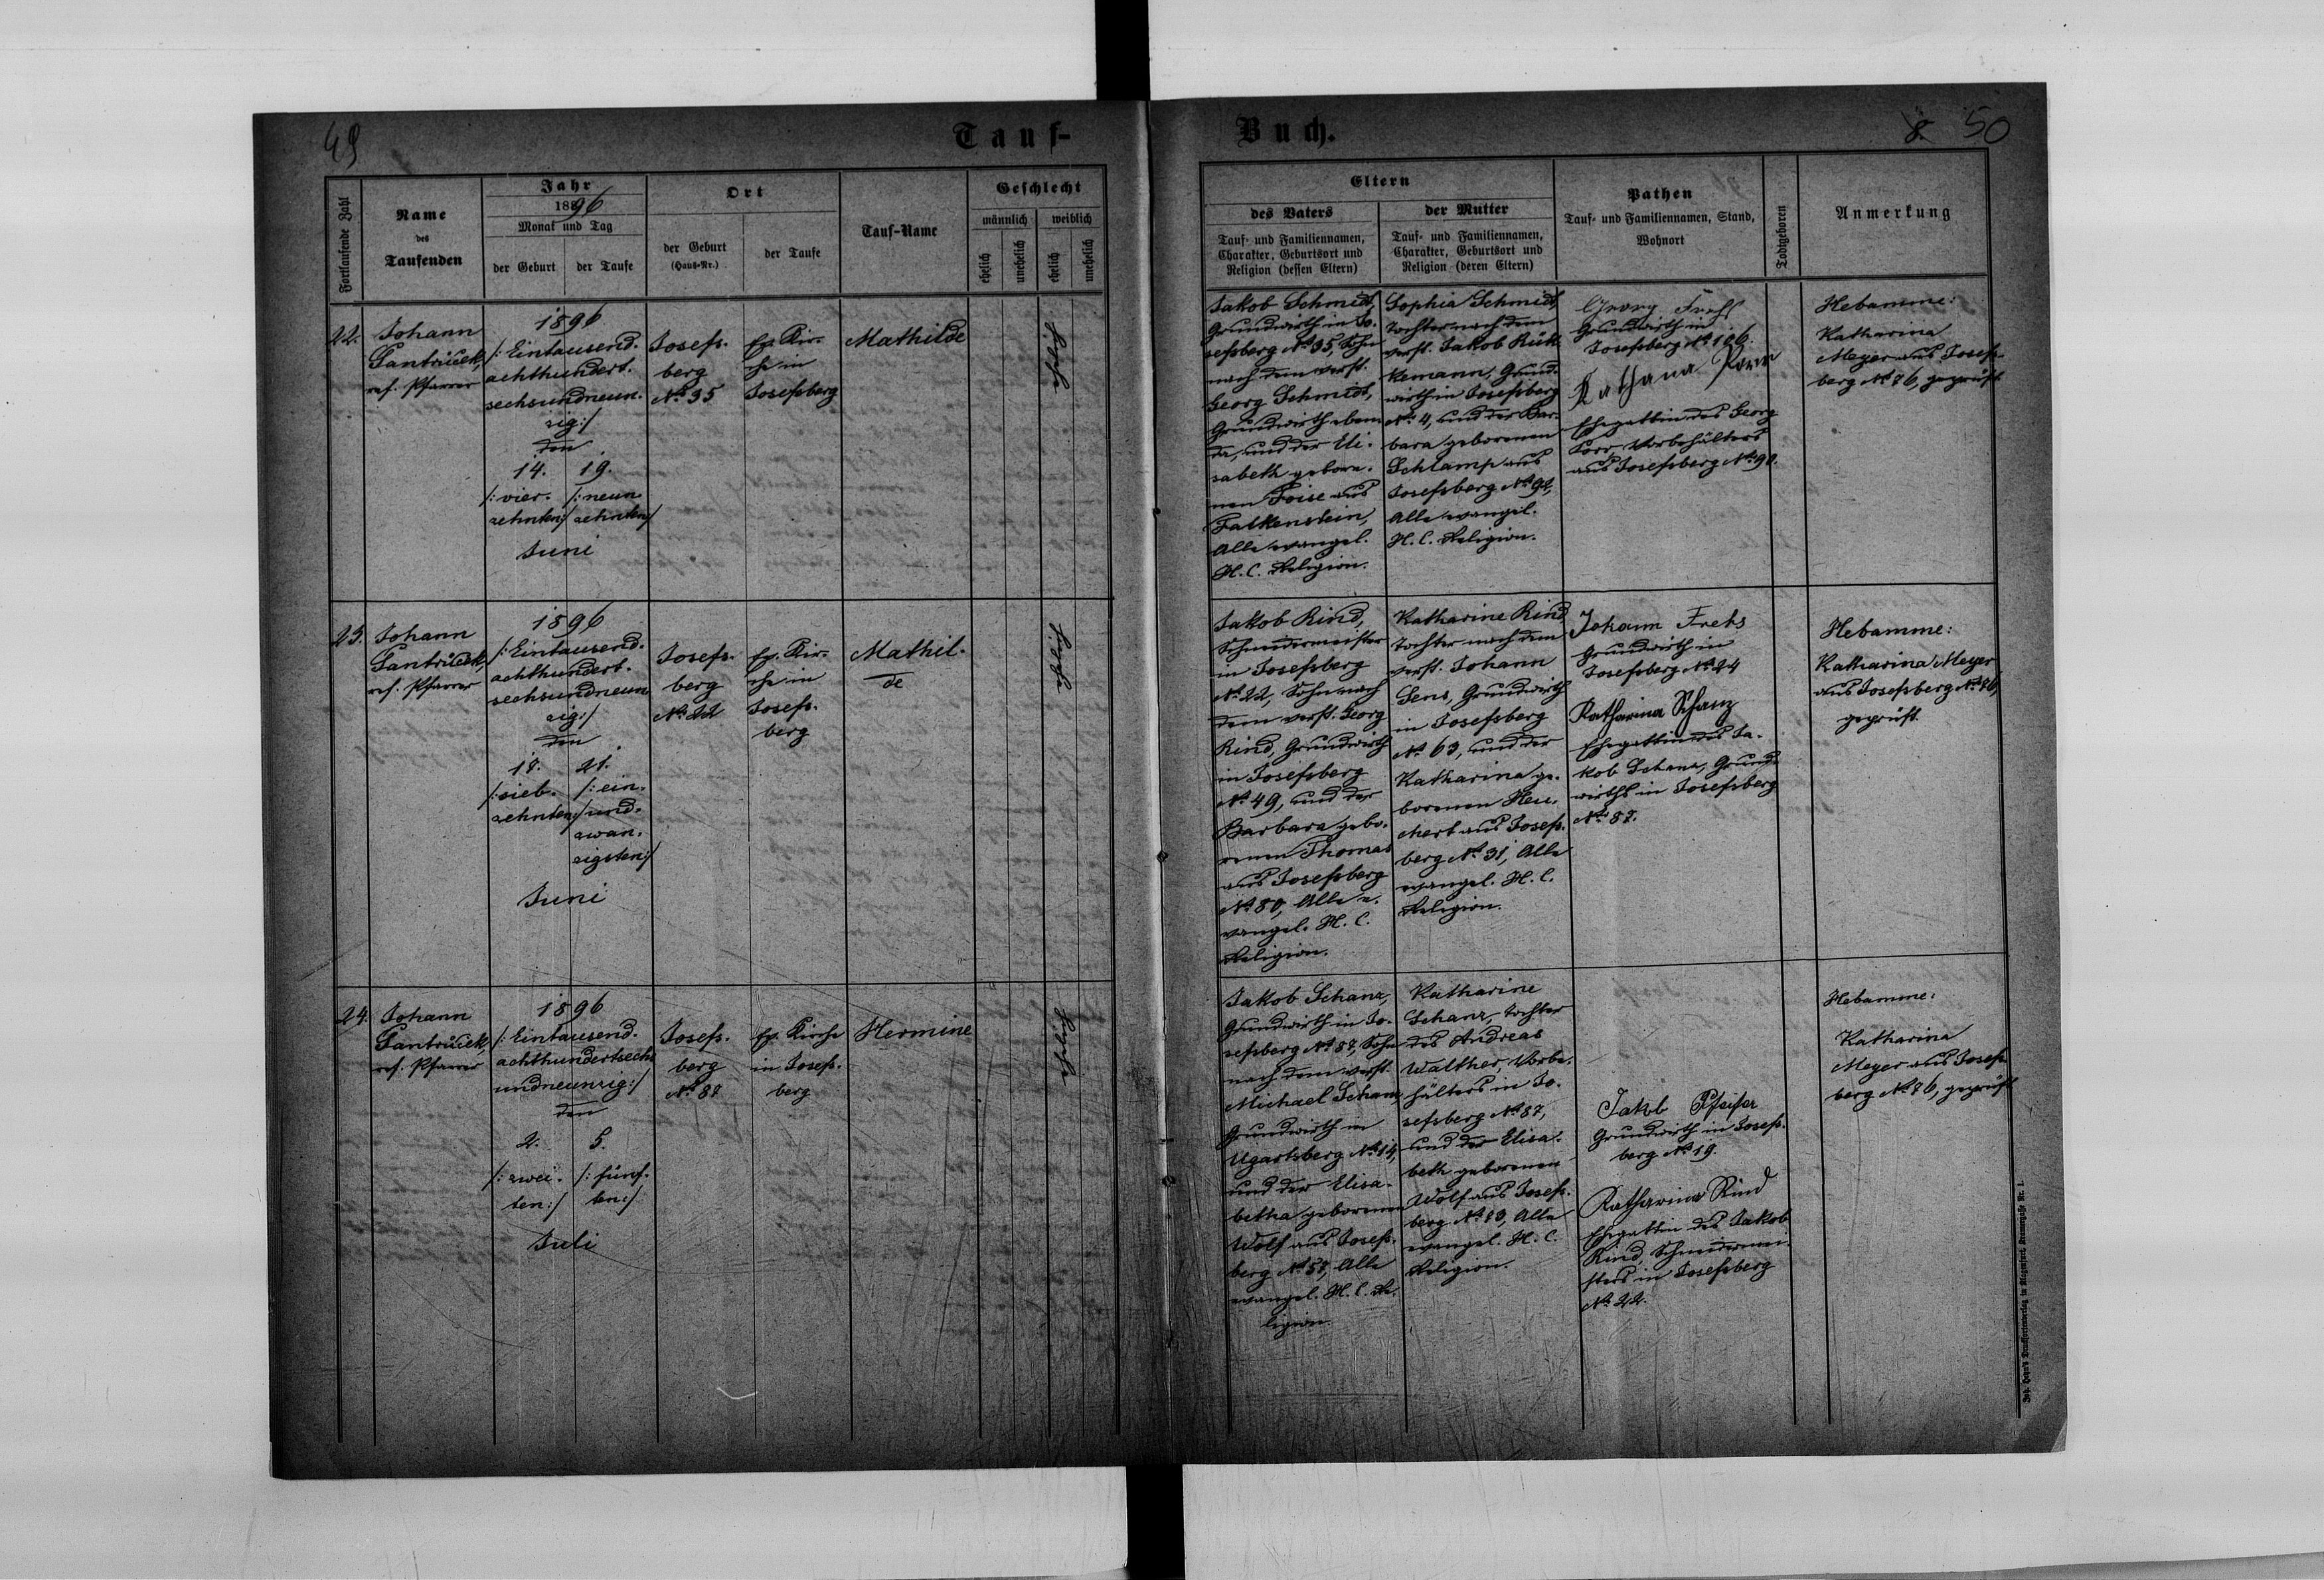 49
Tauf-
Buch.
8. 50
Fortlaufende Zahl
Name
des
Taufenden
Jahr
1896
Monat und Tag
der Geburt
der Taufe
Ort
der Geburt
(Haus-Nr.)
der Taufe
Tauf-Name
Geschlecht
männlich
weiblich
ehelich
unehelich
ehelich
unehelich
Eltern
des Vaters
Tauf- und Familiennamen,
Charakter, Geburtsort und
Religion (dessen Eltern)
der Mutter
Tauf- und Familiennamen,
Charakter, Geburtsort und
Religion (deren Eltern)
Pathen
Tauf- und Familiennamen, Stand,
Wohnort
Todtgeboren
Anmerkung
22.
Johann
ref. Pfarrer
1896
/:Eintausend-
achthundert-
sechsundneun-
zig:/
den
14.
/:vier-
zehnten:/
19.
/:neun-
zehnten:/
Juni
Josefs-
berg
No 35
ev. Kir-
che in
Josefsberg
Mathilde
ehelich
Jakob Schmidt,
Grundwirth in Jo-
sefsberg No 35, Sohn
nach dem verst.
Georg Schmidt,
Grundwirth eben-
da, und der Eli-
sabeth gebore-
nen Foise aus
Falkenstein,
Alle evangel.
H. C. Religion.
Sophia Schmidt,
Tochter nach dem
verst. Jakob Rück-
kemann, Grund-
wirth in Josefsberg
No 4, und der Bar-
bara geborenen
Schlamp aus
Josefsberg No 92,
Alle evangel.
H. C. Religion.
Georg Frehs
Grundwirth in
Josefsberg No 106.
Ehegattin des Georg
Porr, Vorbehälters
aus Josefsberg No 90.
Hebamme:
Katharina
Meyer aus Josefs-
berg No 76, geprüft.
23.
Johann
ref. Pfarrer
1896
/:Eintausend-
achthundert-
sechsundneun
zig:/
den
17.
/:sieb-
zehnten:/
21.
/:ein-
und-
zwan-
zigsten:/
Juni
Josefs-
berg
No 22
ev. Kir-
che in
Josefs-
berg
Mathil-
de
ehelich
Jakob Rind,
Schmiedemeister
in Josefsberg
No 22, Sohn nach
dem verst. Georg
Rind, Grundwirth
in Josefsberg
No 49, und der
Barbara gebo-
renen Thomas
aus Josefsberg
No 80, Alle e-
vangel. H. C.
Religion.
Katharine Rind
Tochter nach dem
verst. Johann
Sens, Grundwirth
in Josefsberg
No 63, und der
Katharina ge-
borenen Heu-
chert aus Josefs-
berg No 31, Alle
evangel. H. C.
Religion.
Johann Frehs
Grundwirth in
Josefsberg No 24
Katharina Schanz
Ehegattin des Ja-
kob Schanz, Grund-
wirths in Josefsberg
No 87.
Hebamme:
Katharina Meyer
aus Josefsberg No 76,
geprüft.
24.
Johann
ref. Pfarrer
1896
/:Eintausend-
achthundertsechs
undneunzig:/
den
2.
/:zwei-
ten:/
5.
/:fünf-
ten:/
Juli
Josefs-
berg
No 87
ev. Kirche
in Josefs-
berg
Hermine
ehelich
Jakob Schanz,
Grundwirth in Jo-
sefsberg No 87, Sohn
nach dem verst.
Michael Schanz,
Grundwirth in
Ugartsberg No 14,
und der Elisa-
betha geborenen
Wolf aus Josefs-
berg No 57, Alle
evangel. H. C. Re-
ligion.
Katharine
Schanz, Tochter
des Andreas
Walther, Vorbe-
hälters in Jo-
sefsberg No 87,
und der Elisa-
beth geborenen
Wolf aus Josefs-
berg No 13, Alle
evangel. H. C.
Religion.
Jakob Pfeifer
Grundwirth in Josefs-
berg No 19.
Katharina Rind
Ehegattin des Jakob
Rind, Schmiedemei-
sters in Josefsberg
No 22.
Hebamme:
Katharina
Meyer aus Josefs-
berg No 76, geprüft